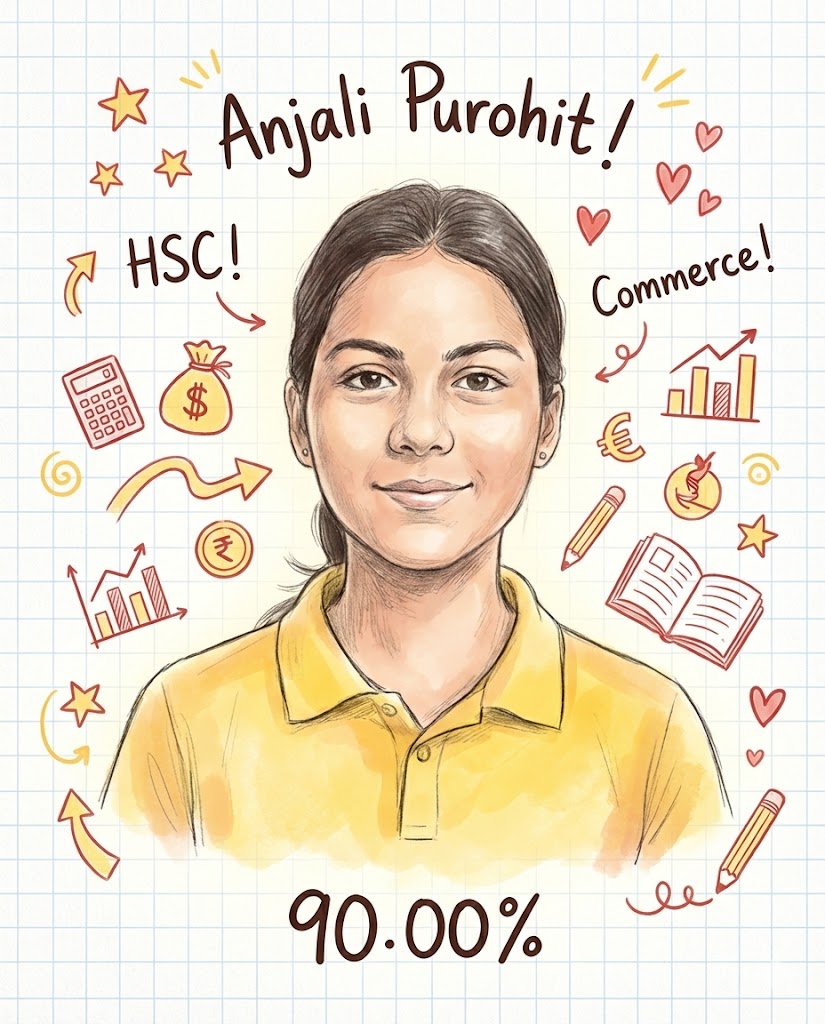 Anjali Purohit!
HSC!
Commerce!
$
€
₹
90.00%